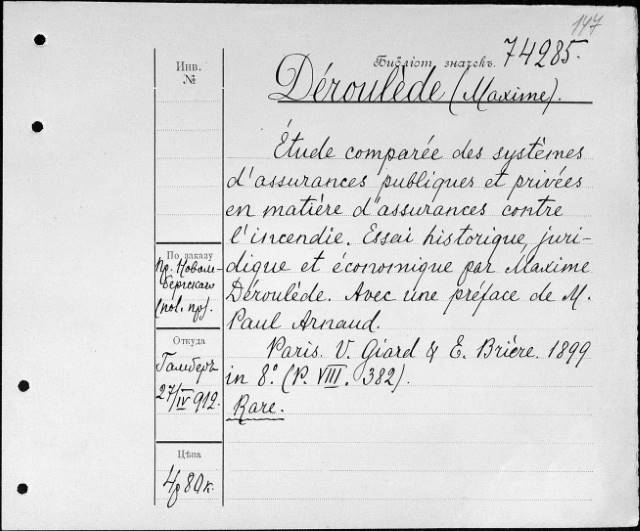 147
Библіот. значекъ. 74285.
Инв.
№
Déroulède (Maxime).
Étude comparée des systèmes
d'assurances publiques et privées
en matière d'assurances contre
l'incendie. Essai historique, juri-
dique et économique par Maxime
Déroulède. Avec une préface de M.
Paul Arnaud.
Paris. V. Giard & E. Brière. 1899
in 8.º (P. VIII. 382).
Rare.
По заказу
пр. Новом-
бергскаго
(пол. пр.).
Откуда
Гамберъ
27/IV 912.
Цѣна
4р 80к.